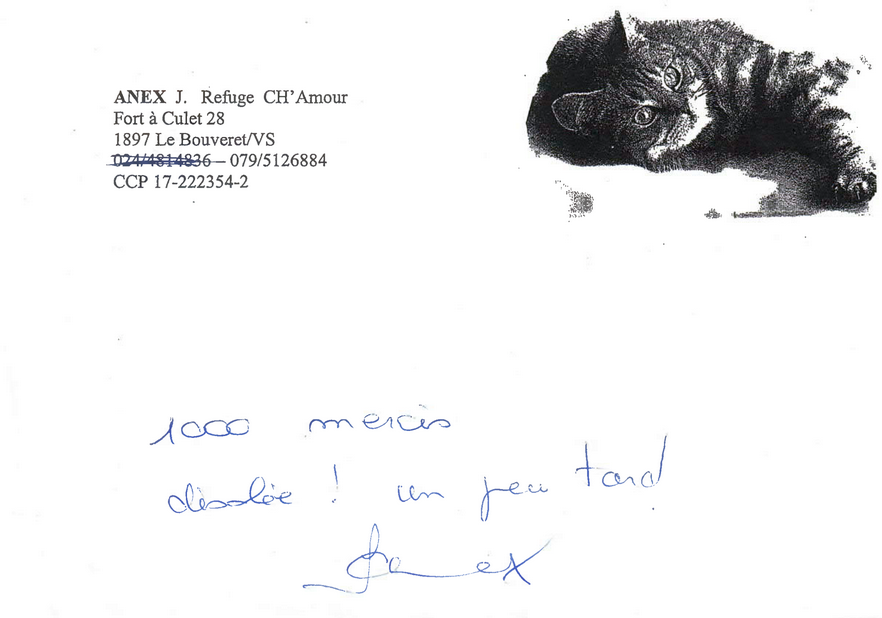 ANEX J. Refuge CH'Amour
Fort à Culet 28
1897 Le Bouveret/VS
024/4814836 – 079/5126884
CCP 17-222354-2
1000 mercis
désolée ! un peu tard